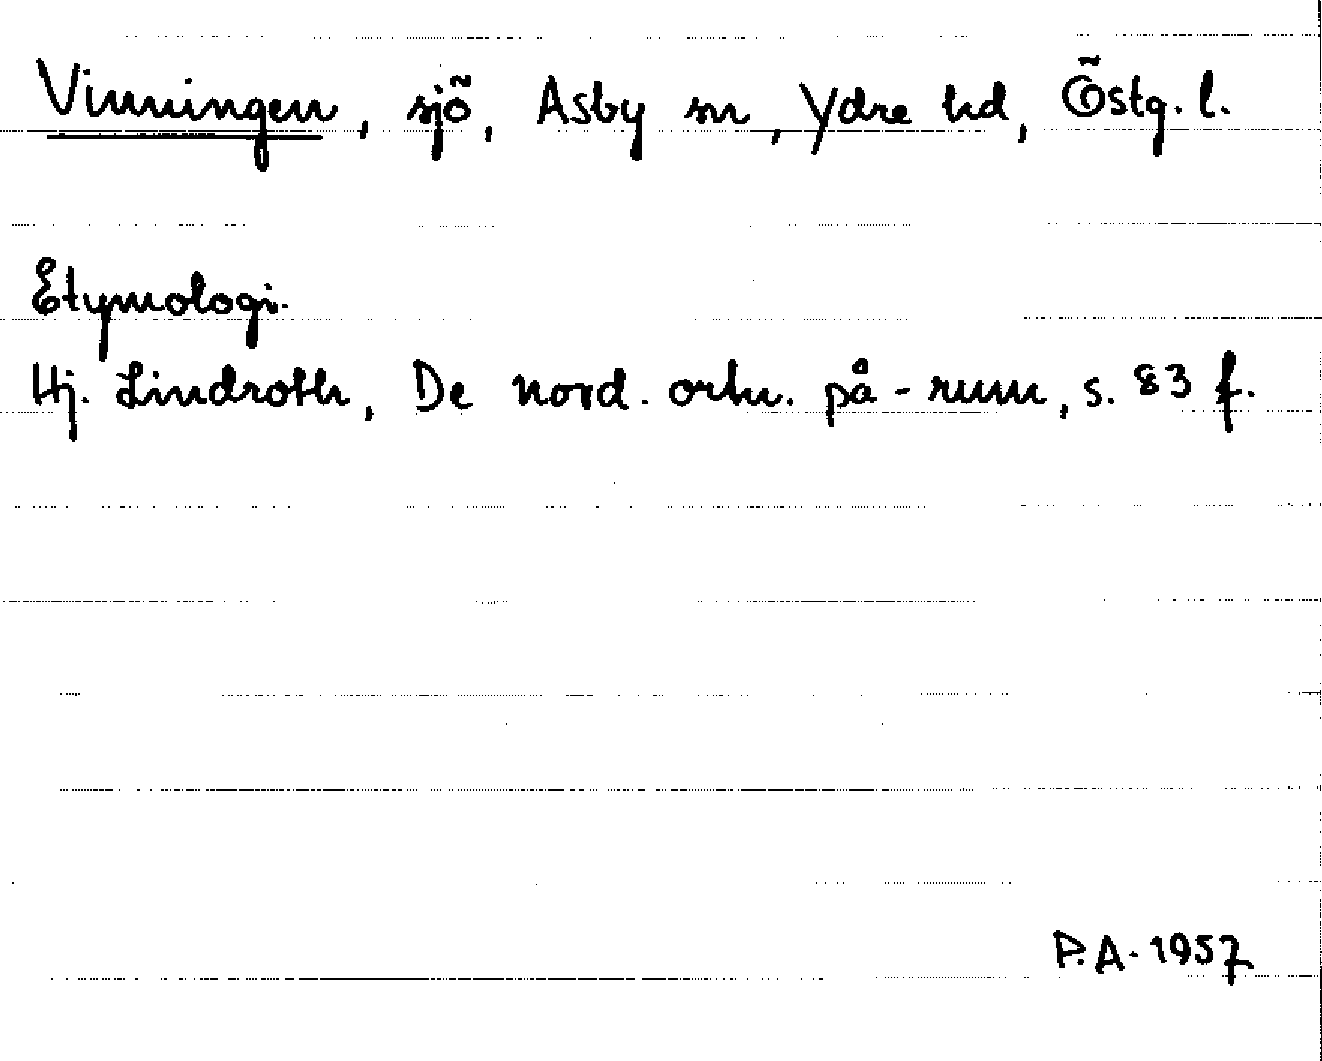 Vinningen, sjö, Asby sn, Ydre hd, Östg. l.
Etymologi.
Hj. Lindroth, De nord. ortn. på -rum, s. 83 f.
P.A. 1957